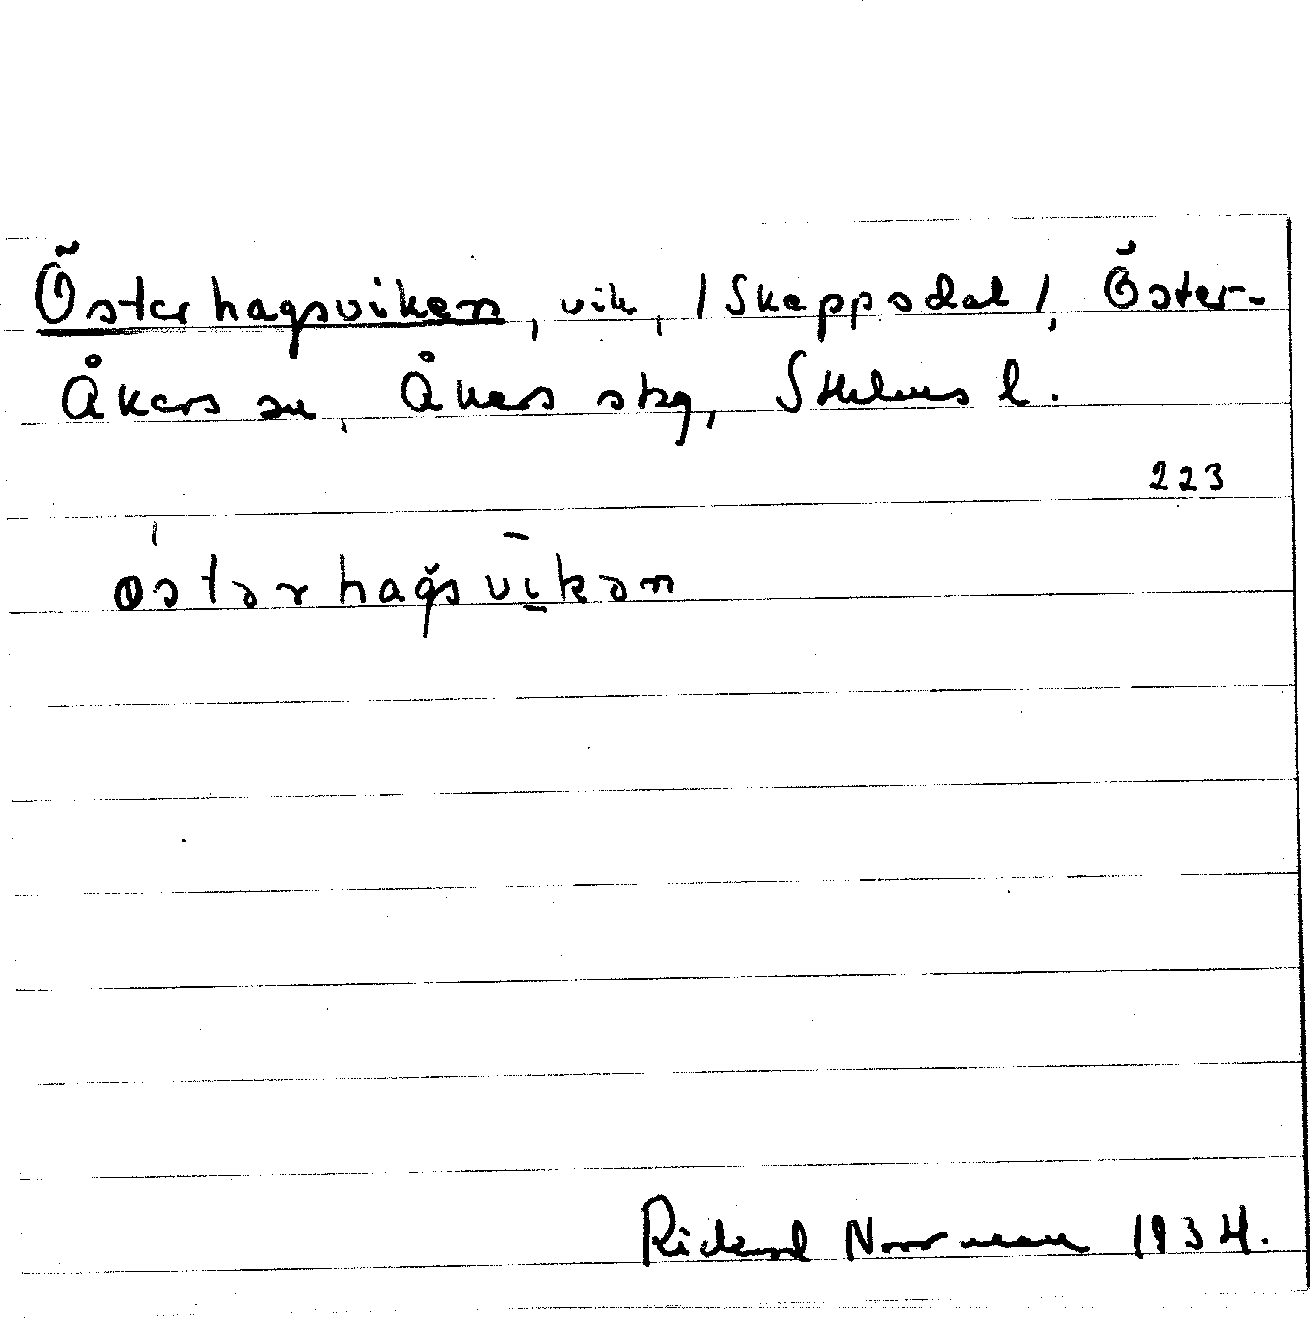 Österhagsviken, vik, /Skeppsdal/, Öster-
Åkers sn, Åkers skg, Sthlms l.
223
östərhağsvī̠kən
Rickard Noorman 1934.